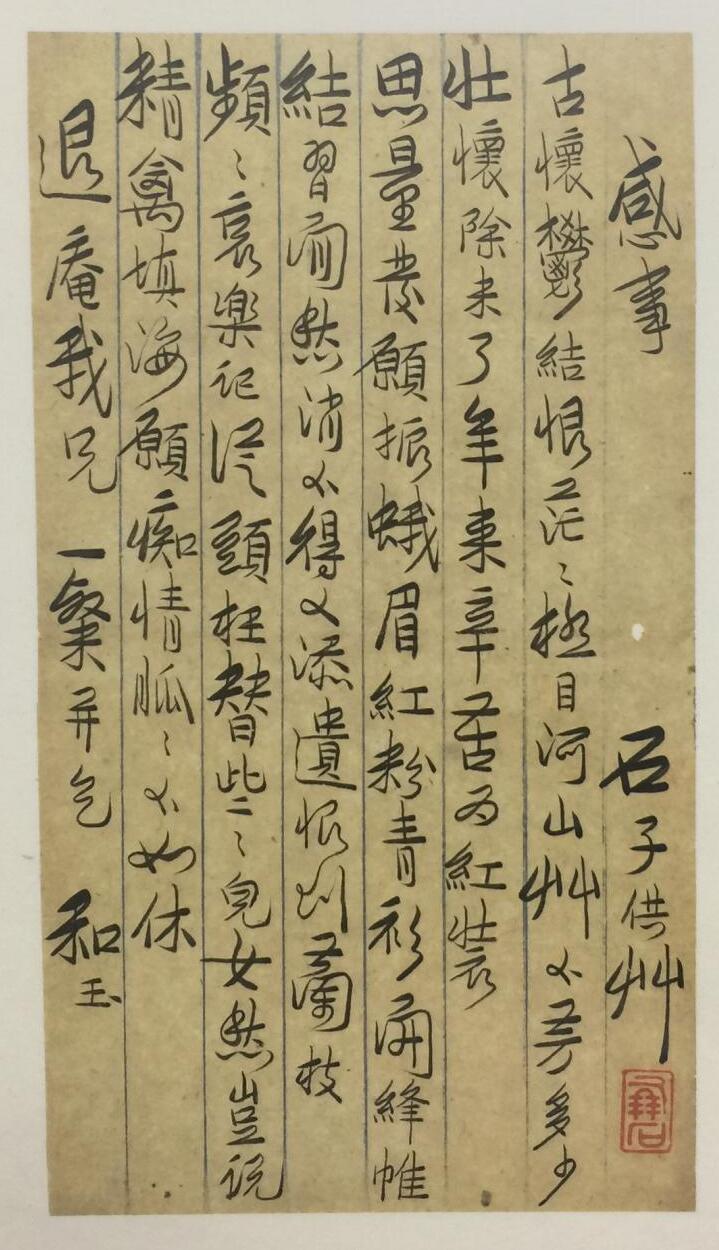 感事 石子供艸
古懷鬱結恨茫〻極目河山艸不芳多少
壯懷除未了年來辛苦為紅裝
思量發願振蛾眉紅粉青衫開絳帷
結習閒愁消不得又添遺恨刈蘭枝
頻〻哀樂記從頭枉替些〻兒女愁豈說
精禽填海願痴情脈〻不如休
退庵我兄 一粲并乞 和玉